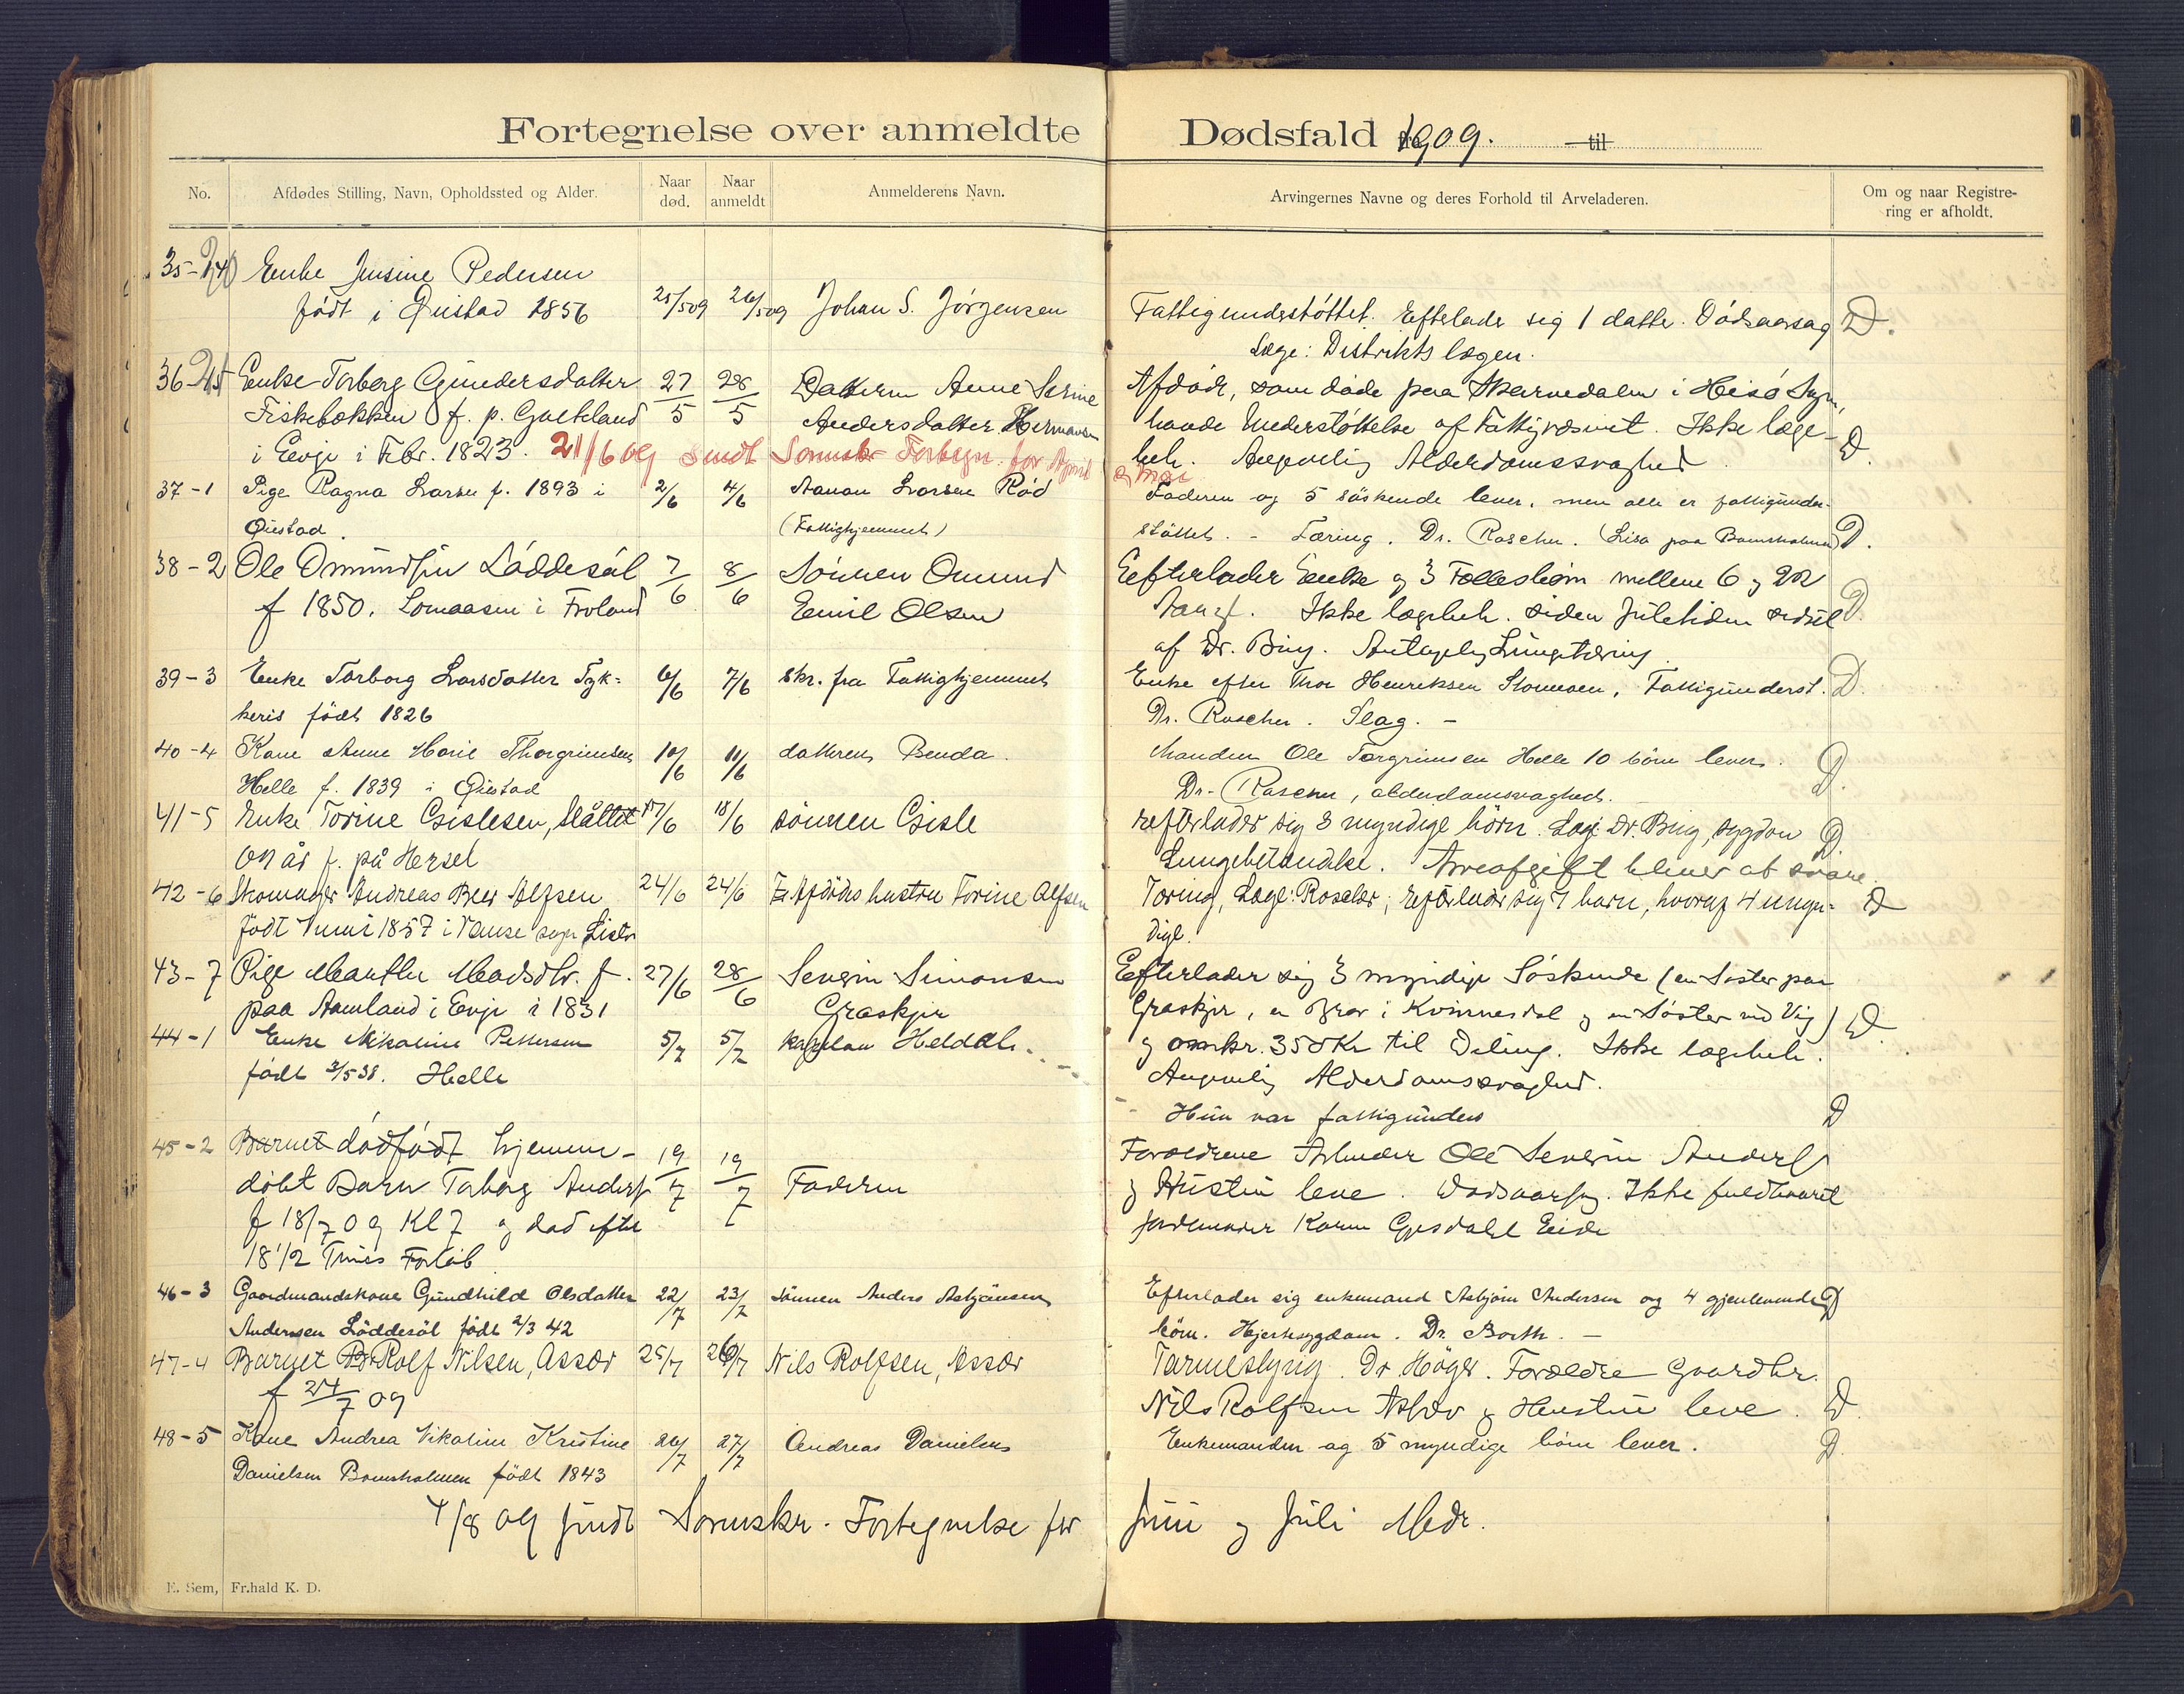 Fortegnelse over anmeldte Dødsfald 1909. til
No.
Afdødes Stilling, Navn, Opholdssted og Alder.
Naar død.
Naar anmeldt
Anmelderens Navn.
Arvingernes Navne og deres Forhold til Arveladeren.
Om og naar Registrering er afholdt.
35- Enke Jensine Pedersen
født i Øiestad 1856 25/5 09 26/5 09 Johan S. Jørgensen Fattigunderstøttet. Efterlader sig 1 datter. Dødsaarsag D.
Læge: Distriktslægen.
36 Enke Torborg Gundersdatter 27/5 28/5 Datteren Anne Serine Afdøde, som døde paa i Hisø Sogn,
Fiskebækken f. p. Andersdatter Hermansen havde Understøttelse af Fattigvæsenet. Ikke læge-
i Evje i Febr. 1823. 21/6 09 sendt Sorenskr Fortegn. for April og Mai beh. Angivelig Alderdomssvaghed D.
37-1 Pige Ragna Larsen f. 1893 i 2/6 4/6 Aanon Larsen Rød Faderen og 5 søskende lever, men alle er fattigunder-
Øiestad. (Fattighjemmet) støttet. - Tæring. Dr. Roscher. D.
38-2 Ole Omundsen Løddesøl 7/6 8/6 Sønnen Omund Efterlader Enke og 3 Fællesbørn mellem 6 og 22
f 1850. Lomaasen i Froland Emil Olsen Aar. Ikke lægebeh. siden Juletiden D.
af Dr. Bing. Antagelig Lungetæring
39-3 Enke Torborg Larsdatter Tyk- 6/6 7/6 skr. fra Fattighjemmet Enke efter Thor Henriksen Fattigunderst. D.
heris født 1826 Dr. Roscher. Slag. -
40-4 Kone Anne Marie Thorgrimsen 10/6 11/6 datteren Benda. Manden Ole Torgrimsen Helle 10 børn lever. D.
Helle f. 1839 i Øiestad Dr. Roscher, alderdomssvaghed.
41-5 Enke Torine Gislesen, 17/6 18/6 sønnen Gisle Efterlader sig 3 myndige børn. Læge Dr. Bing, sygdom D
år f. på Hersel Lungebetændelse. Arveafgift bliver at svare.
42-6 Skomager Andreas Beer Alfsen 24/6 24/6 Afdødes hustru Torine Alfsen Tæring, Læge: Roscher; Efterlader sig 7 barn, hvoraf 4 umyn- D
født Juni 1857 i Vanse sogn Lister dige.
43-7 Pige Marthe Madsdtr. f. 27/6 28/6 Severin Simonsen Efterlader sig 3 myndige Søskende (en Søster paa
paa Aamland i Evje i 1831 Graskjær Graskjær, en Bror i Kvinesdal og en Søster ved Vig)
44-1 Enke Nikoline Pettersen 5/7 5/7 kapellan Heldal. og omkr. 350 Kr til Deling. Ikke lægebeh. D.
født 3/5 38. Helle Angivelig Alderdomssvaghed.
Hun var fattigunders D
45-2 Barnet dødfødt hjemme- 19/7 19/7 Forældrene Arbeider Ole Severin Anders
døbt Barn Torborg Anders Faderen og Hustru leve. Dødsaarsag. Ikke fuldbaaret
f 18/7 09 Kl 7 og død efter Jordmoder Karen Gjesdahl Eide
18 1/2 Times Forløb
46-3 Gaardmandskone Gundhild Olsdatter 22/7 23/7 sønnen Anders Asbjørnsen Efterlader sig enkemand Asbjørn Andersen og 4 gjenlevende D
Andersen Løddesøl født 2/3 42 børn. Hjertesygdom. Dr. Borth. -
47-4 Barnet Rolf Nilsen, Assær 25/7 26/7 Nils Rolfsen, Assær Tarmeslyng. Dr Høyer. Forældre Gaardbr.
f 24/7 09 Nils Rolfsen Assær og Hustru leve. D.
48-5 Kone Andrea Nikoline Kristine 26/7 27/7 Andreas Danielsen Enkemanden og 5 myndige børn lever. D.
Danielsen Bomsholmen født 1843
4/8 09 sendt Sorenskr. Fortegnelse for Juni og Juli Mdr.
E. Sem, Fr.hald K. D.